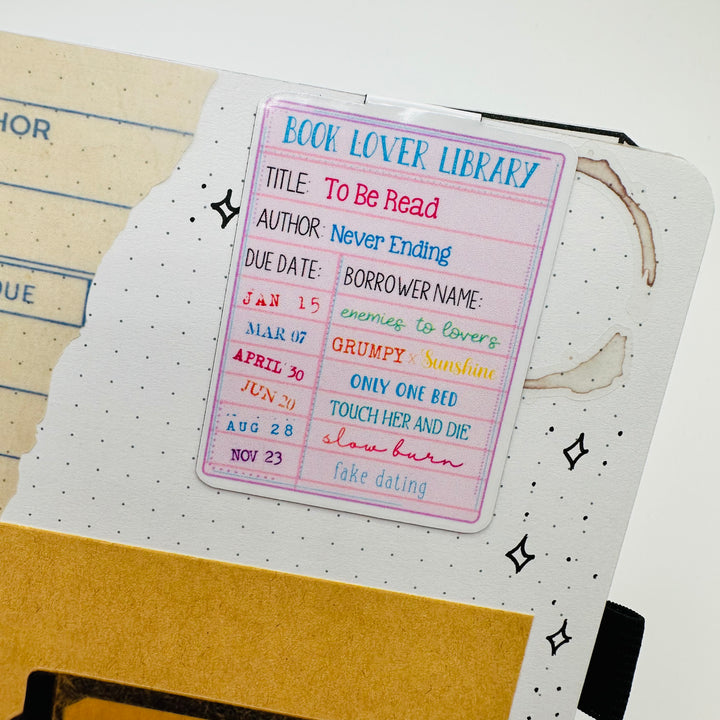 HOR
DUE
BOOK LOVER LIBRARY
TITLE: To Be Read
AUTHOR: Never Ending
DUE DATE: BORROWER NAME:
JAN 15 enemies to lovers
MAR 07 GRUMPY x Sunshine
APRIL 30 ONLY ONE BED
JUN 20 TOUCH HER AND DIE
AUG 28 slow burn
NOV 23 fake dating